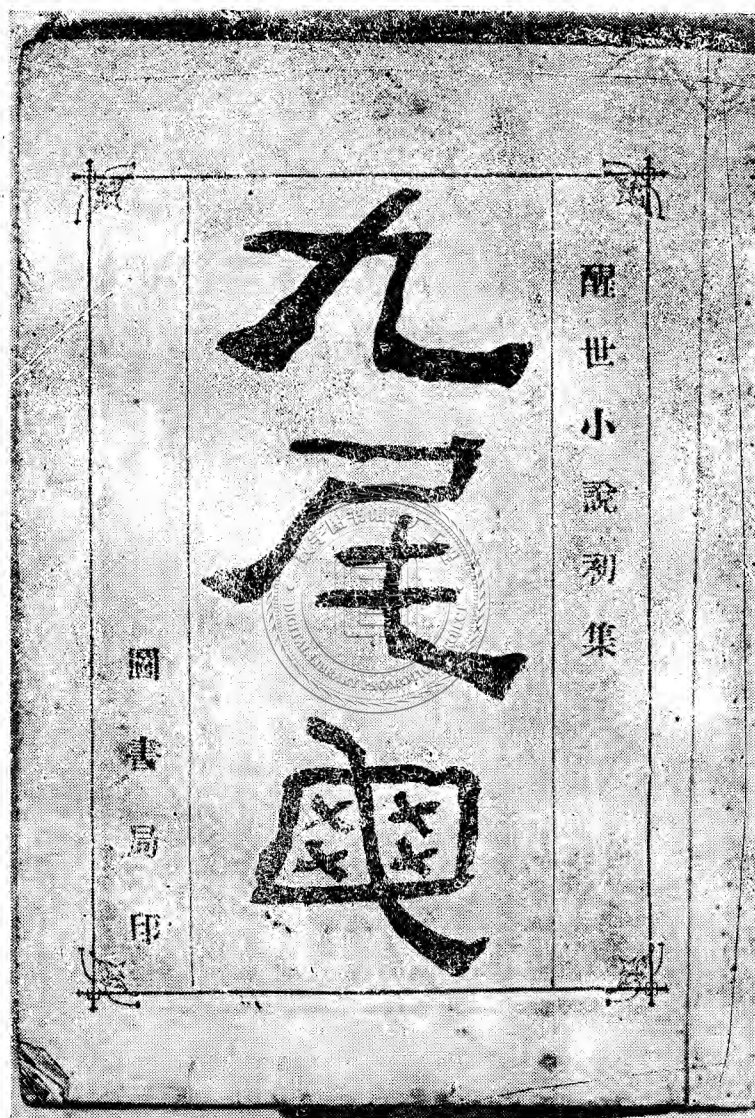 醒世小說初集
九尾龜
圖書局印